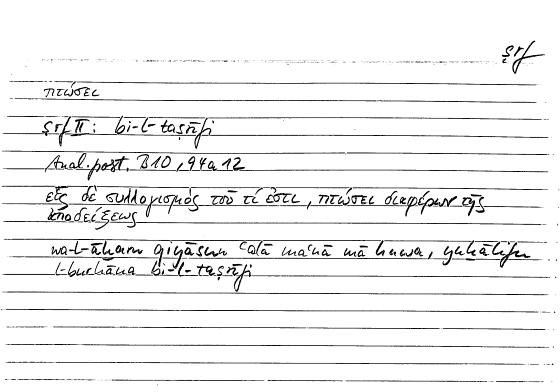 ṣrf
πτώσει
ṣrf II: bi-l-taṣrīfi
Anal. post. B10, 94a12
εἷς δὲ συλλογισμὸς τοῦ τί ἐστι, πτώσει διαφέρων τῆς
ἀποδείξεως
wa-l-āḫaru qiyāsun ʿalā maʿnā mā huwa, yuḫālifu
l-burhāna bi-l-taṣrīfi